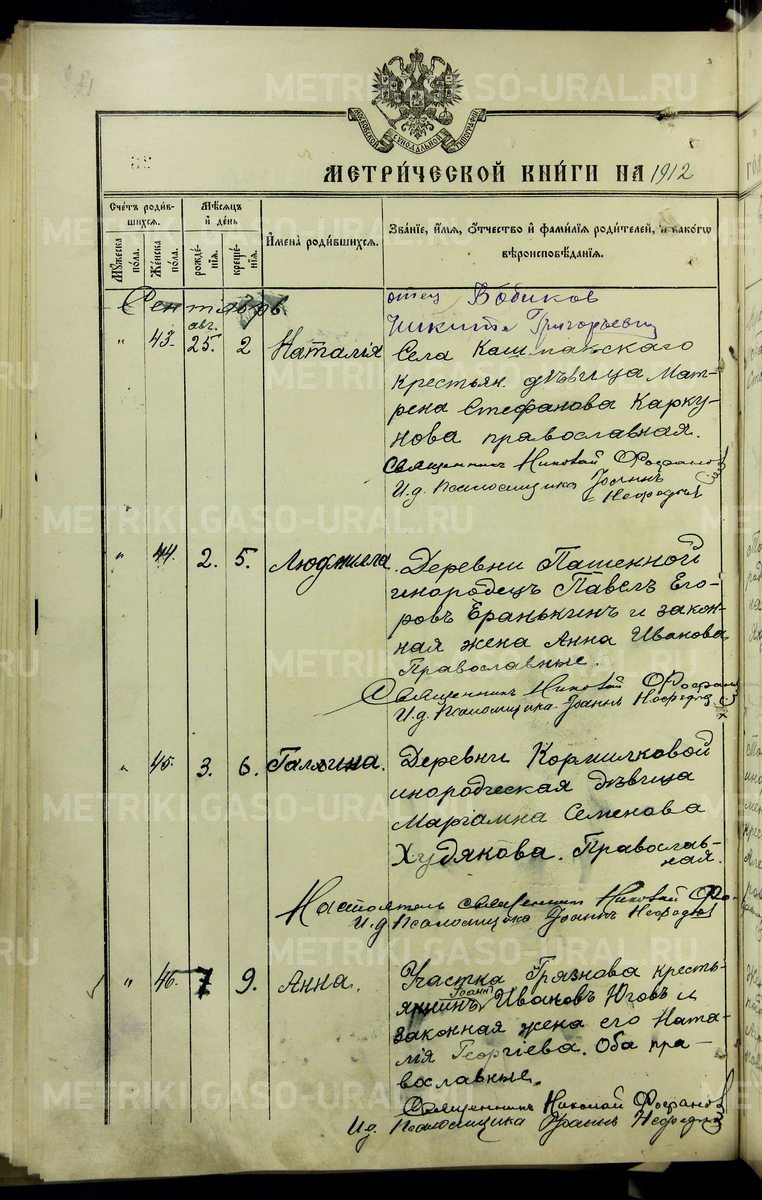 МОСКОВСКОЙ СѴНОДАЛЬНОЙ ТИПОГРАФІИ
МЕТРИ́ЧЕСКОЙ КНИ́ГИ НА 1912
Сче́тъ роди́вшихсѧ.
Мꙋ́жеска по́ла.
Же́нска по́ла.
Мѣ́сѧцъ и҆ де́нь
рожде́нїѧ.
креще́нїѧ.
И҆мена̀ роди́вшихсѧ.
Зва́нїе, и҆́мѧ, ѻ҆́тчество и҆ фами́лїѧ роди́телей, и҆ како́гѡ
вѣроисповѣ́данїѧ.
Сентябрь
отец Бобиков
Никита Григорьевич
" 43. авг. 25. 2 Наталія
Села Кашпажскаго
крестьян дѣвица Мат-
рена Стефанова Карку-
нова православная.
Священникъ Николай Фофанов
И.д. Псаломщика Іоаннъ
Нефедьев
" 44. 2. 5. Людмила.
Деревни Пашенной
инородецъ Павелъ Его-
ровъ Еранькинъ и закон-
ная жена Анна Иванова
Православные.
Священникъ Николай Фофанов
И.д. Псаломщика Іоаннъ Нефедьев
" 45. 3. 6. Галина.
Деревни Кормилковой
инородческая дѣвица
Маріамна Семенова
Худякова. Православ-
ная.
Настоятель священник Николай Фо-
И.д. Псаломщика Іоаннъ Нефедьев
" 46. 7 9. Анна.
Участка Грязнова кресть-
янинъ Іоаннъ Ивановъ Юговъ и
законная жена его Ната-
лія Георгіева. Оба пра-
вославные.
Священникъ Николай Фофанов
И.д. Псаломщика Іоаннъ Нефедьев
METRIKI.GASO-URAL.RU